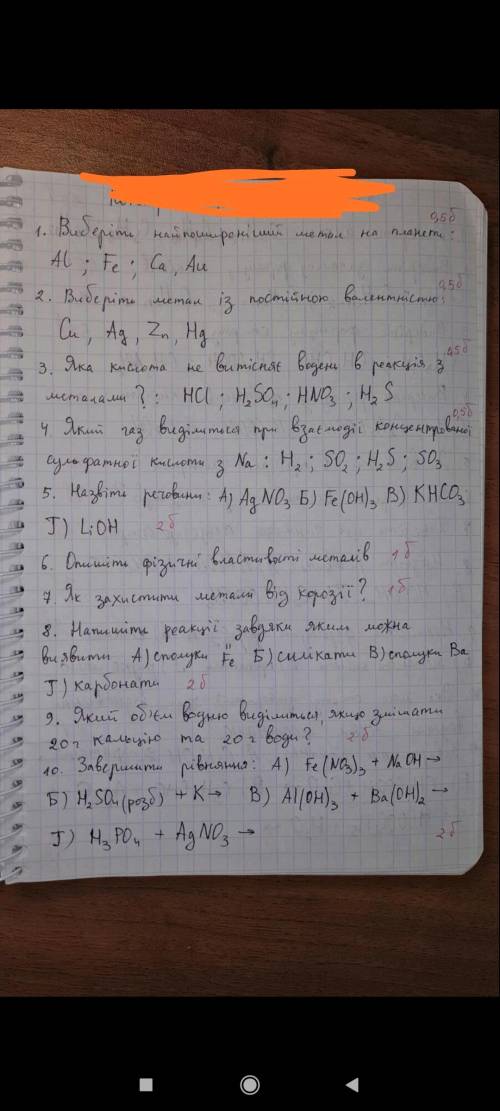 0,5б
1. Виберіть найпоширеніший метал на планеті:
Al ; Fe ; Ca, Au
2. Виберіть метал із постійною валентністю: 0,5б
Cu, Ag, Zn, Hg
3. Яка кислота не витісняє водень в реакція з 0,5б
металами? : HCl ; H₂SO₄ ; HNO₃ ; H₂S
4 Який газ виділиться при взаємодії концентрованої 0,5б
сульфатної кислоти з Na : H₂ ; SO₂ ; H₂S ; SO₃
5. Назвіть речовини: А) AgNO₃ Б) Fe(OH)₃ В) KHCO₃
Г) LiOH 2б
6. Опишіть фізичні властивості металів 1б
7. Як захистити метали від корозії? 1б
8. Напишіть реакції завдяки яким можна
виявити А) сполуки Fe Б) силікати В) сполуки Ba
Г) карбонати 2б
9. Який об'єм водню виділиться, якщо змішати
20 г кальцію та 20 г води? 2б
10. Завершити рівняння: А) Fe(NO₃)₃ + NaOH →
Б) H₂SO₄(розб) + K → В) Al(OH)₃ + Ba(OH)₂ →
Г) H₃PO₄ + AgNO₃ → 2б